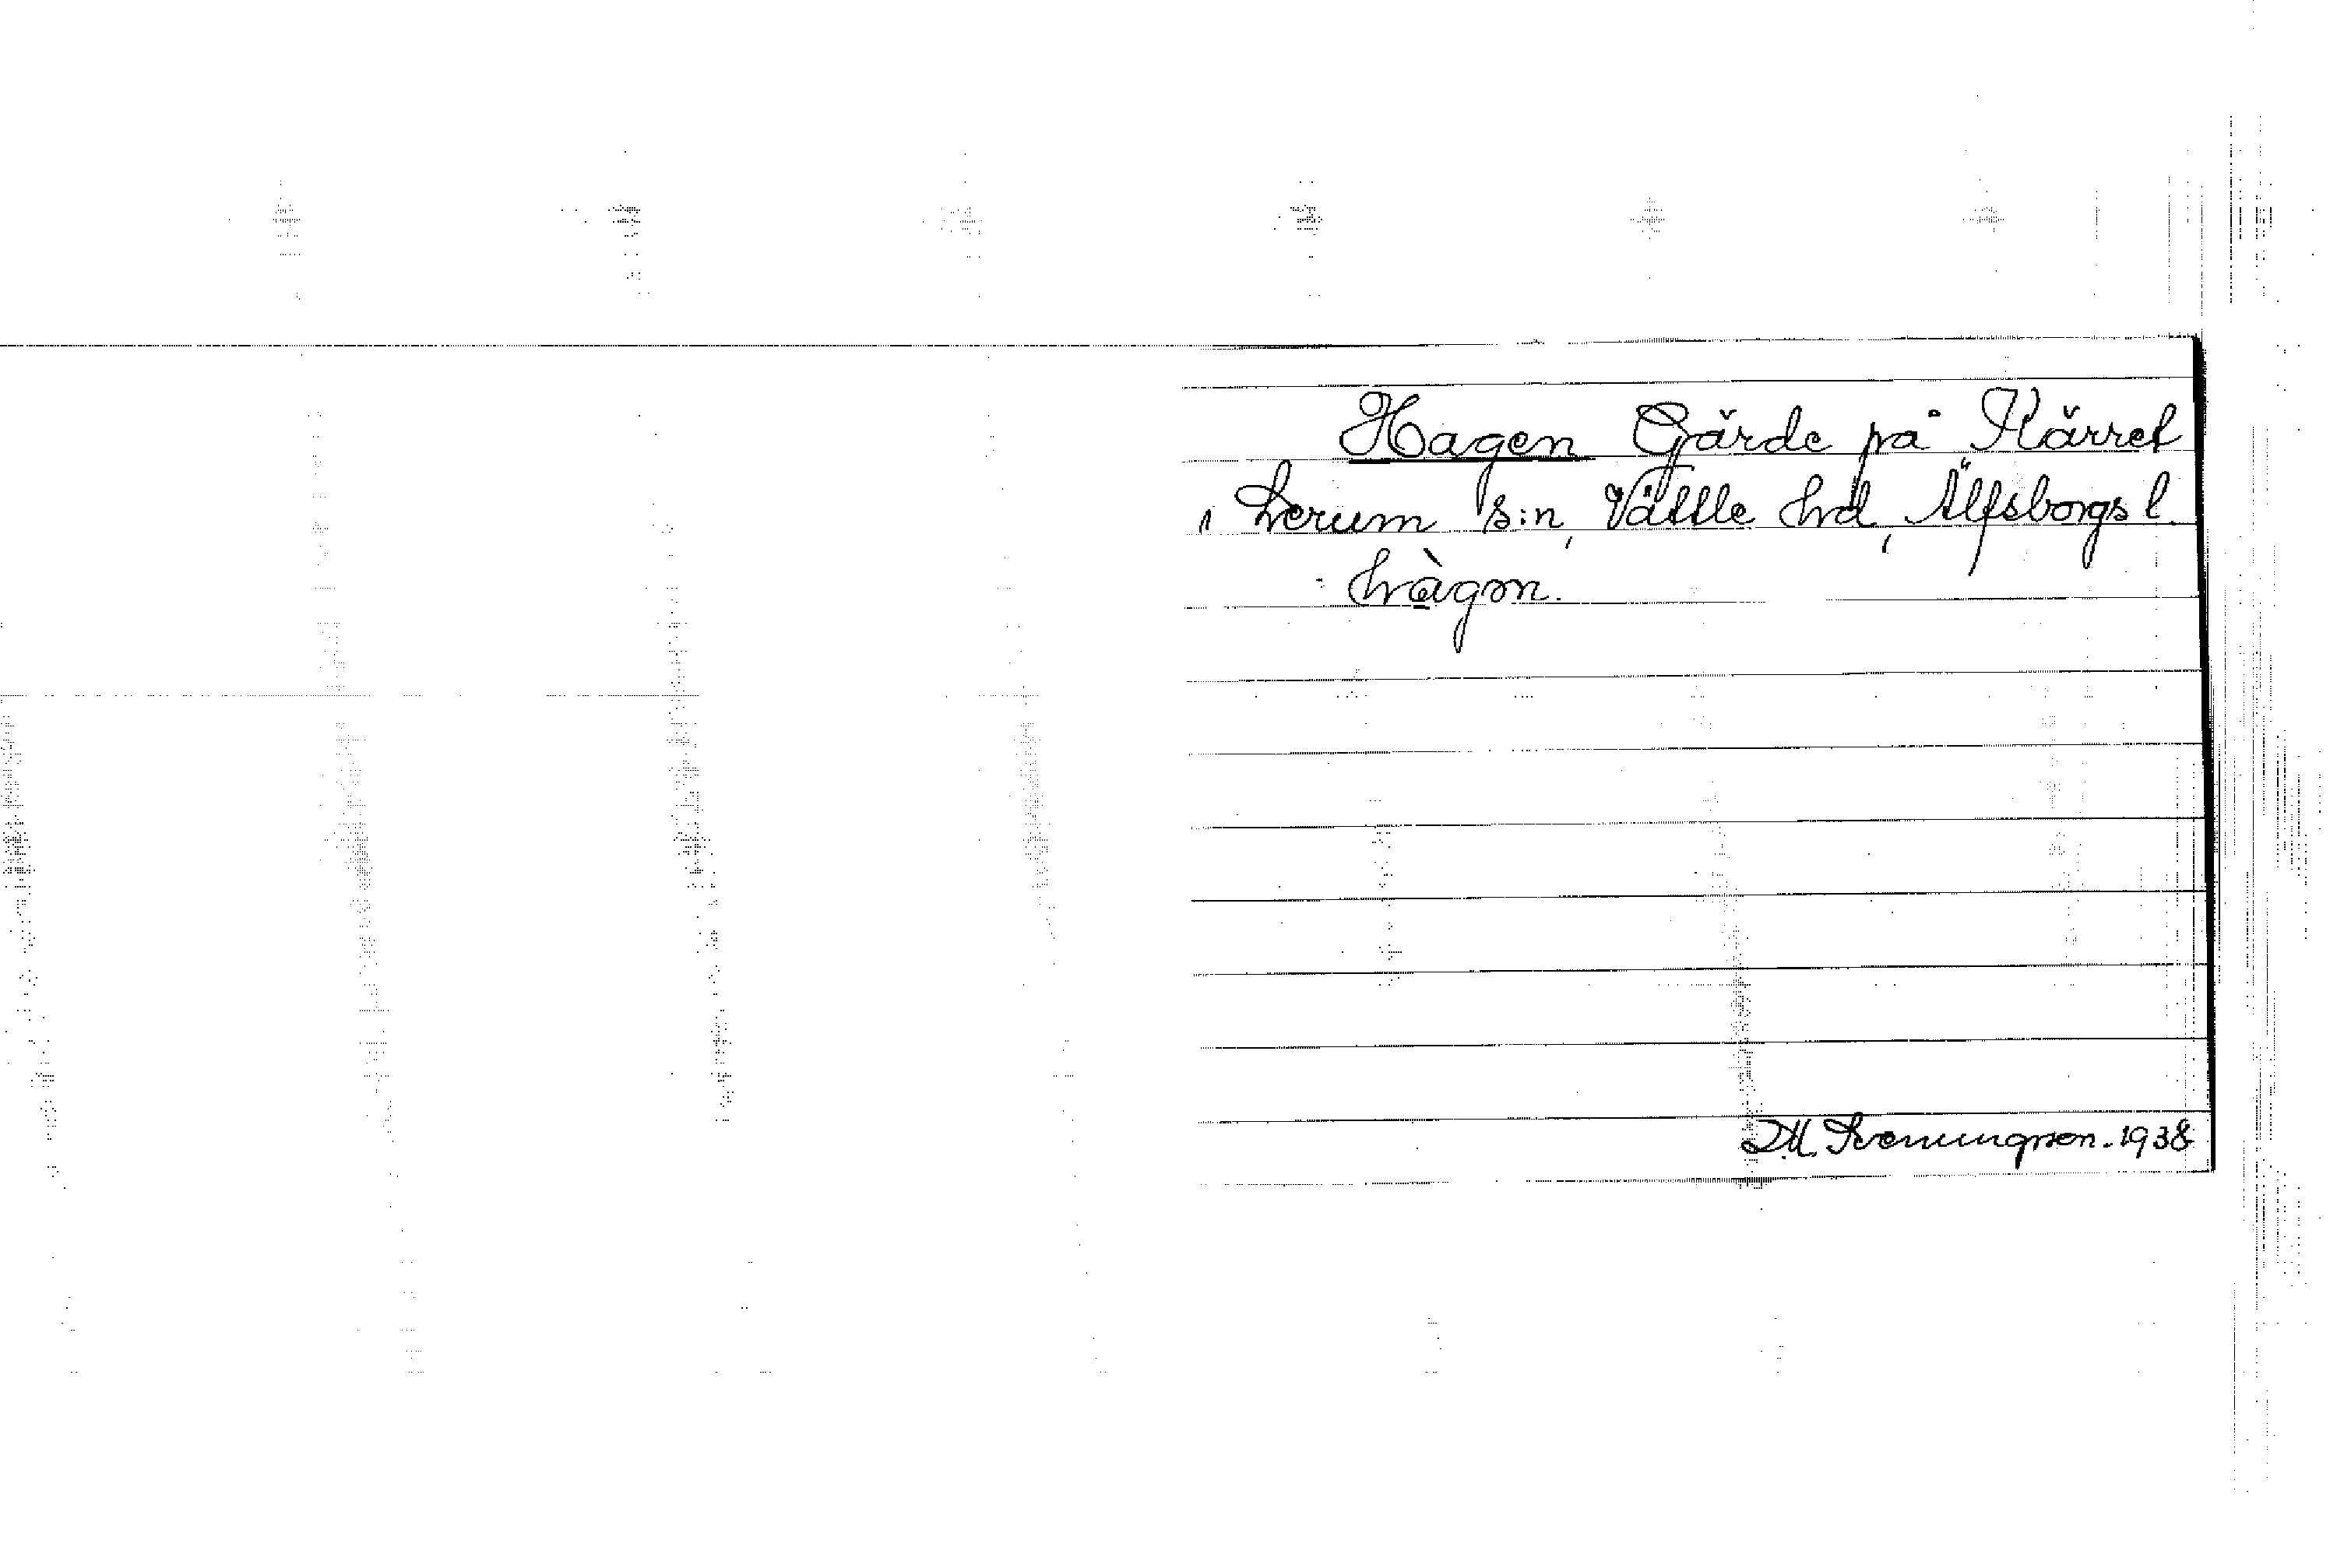 Hagen Gärde på Kärret
i Lerum s:n, Vättle hd, Älfsborgs l.
hàgɷn.
D.M. Svenungsson. 1938